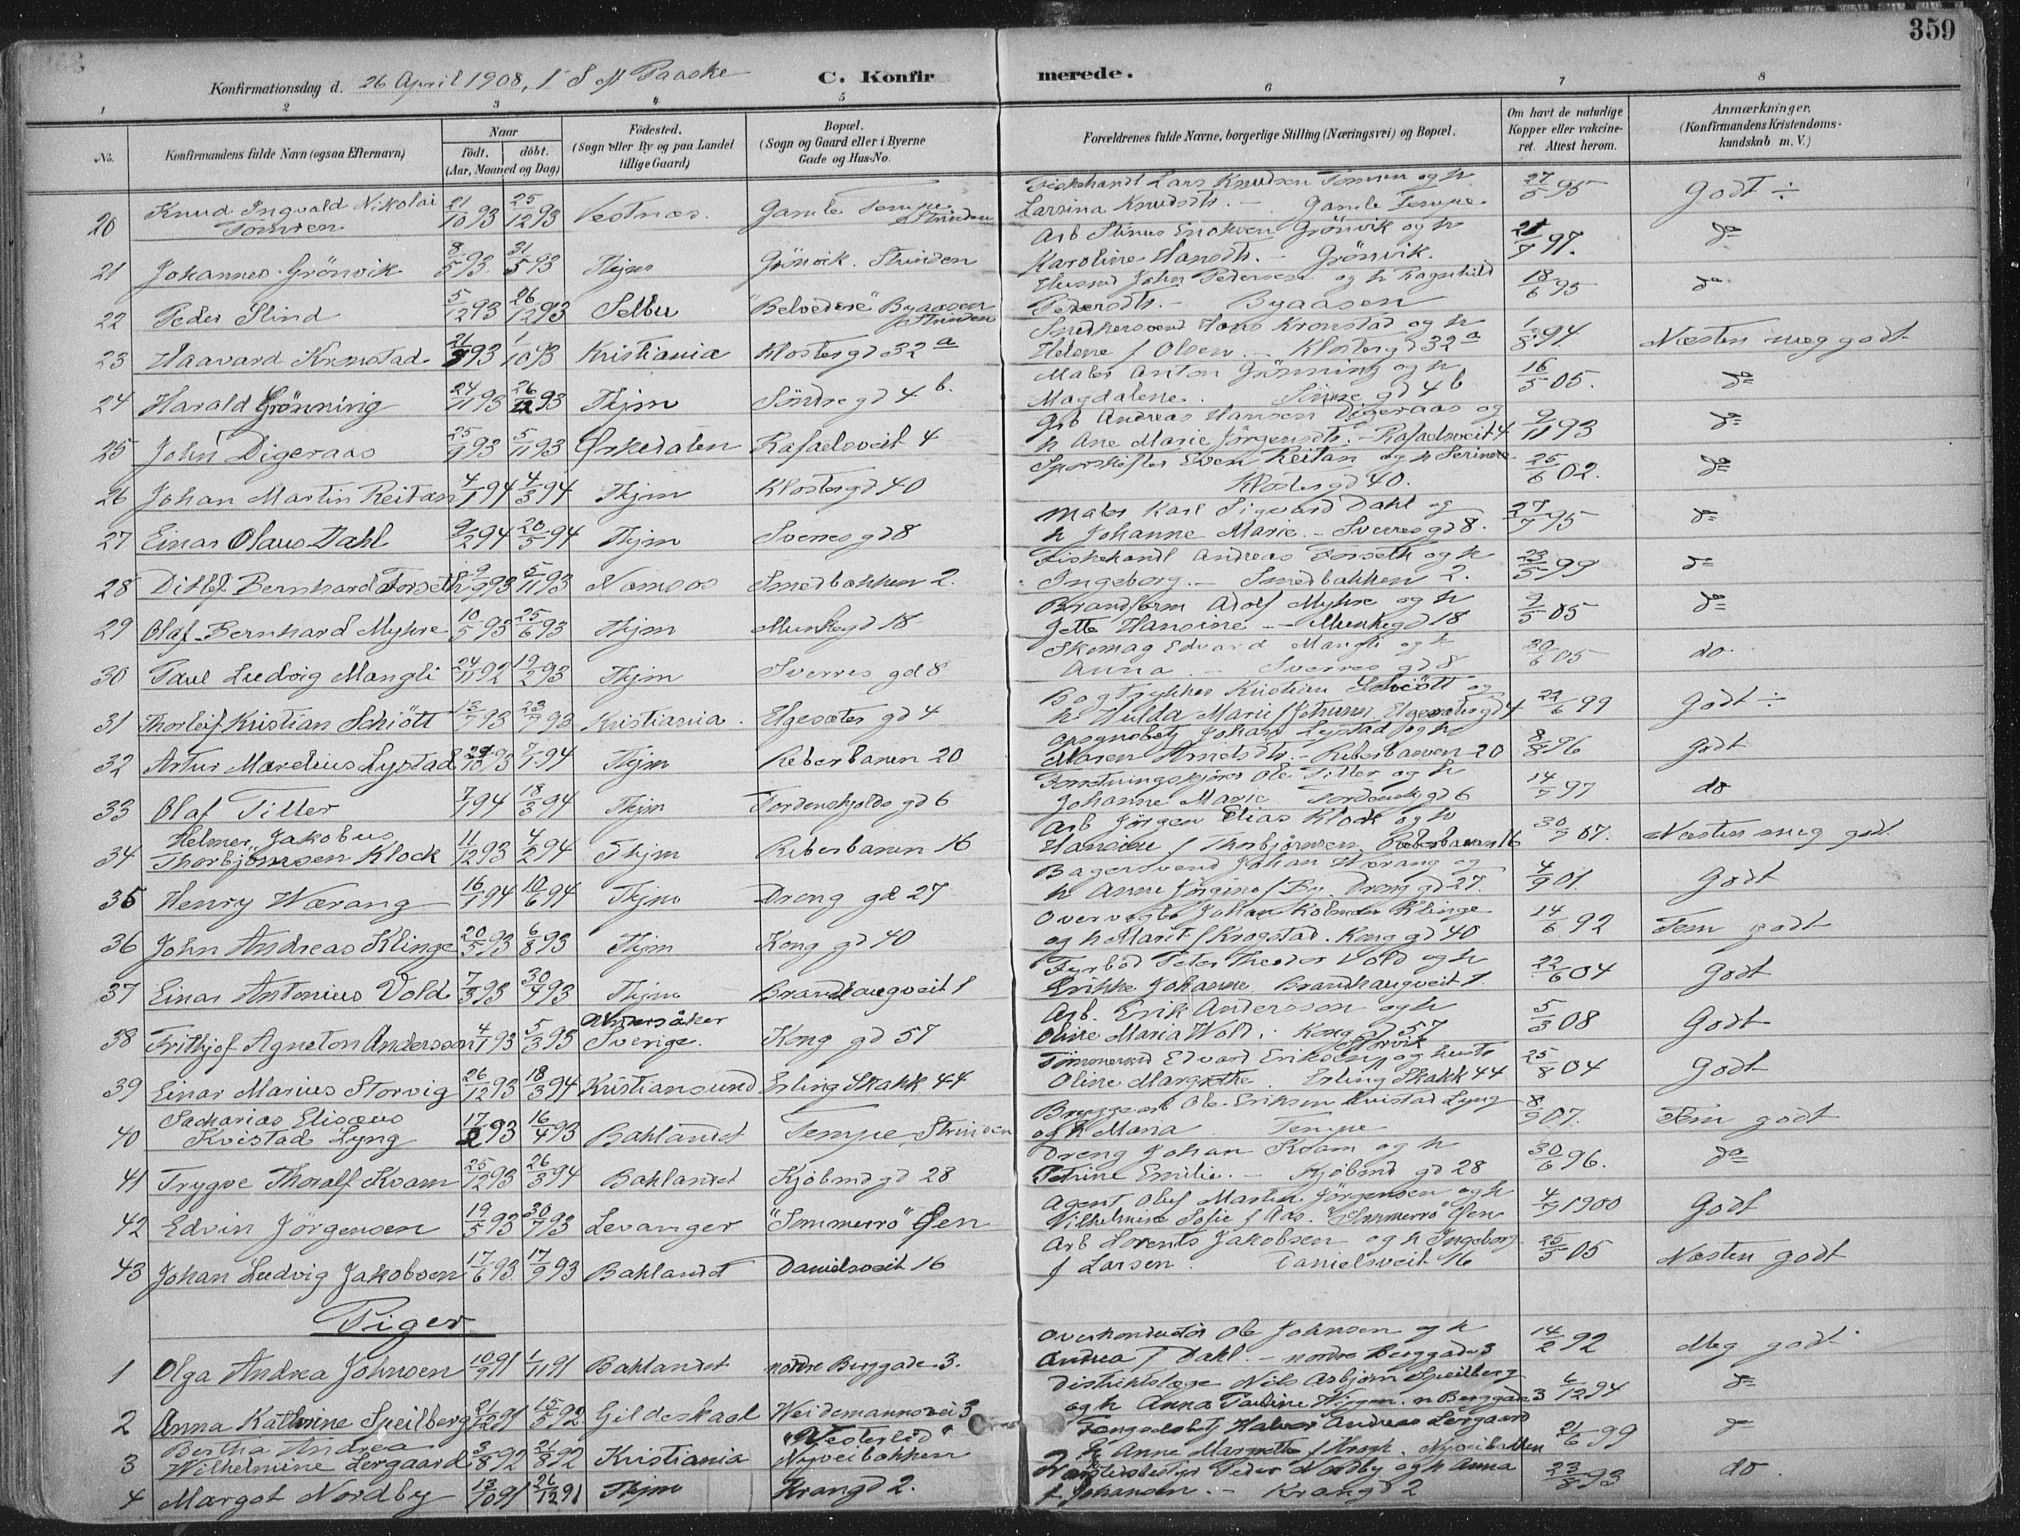 359
Konfirmationsdag d. 26 April 1908, 1 S M Paaske C. Konfirmerede.
1 2 3 4 5 6 7 8
No. Konfirmandens fulde Navn (ogsaa Efternavn) Naar født. døbt. (Aar, Maaned og Dag) Fødested. (Sogn eller By og paa Landet tillige Gaard) Bopæl. (Sogn og Gaard eller i Byerne Gade og Hus-No. Forældrenes fulde Navne, borgerlige Stilling (Næringsvei) og Bopæl. Om havt de naturlige Kopper eller vakcineret. Attest herom. Anmærkninger. (Konfirmandens Kristendomskundskab m. V.)
20 Knud Ingvald Nikolai Tomren 21/10 93 25/12 93 Vestnæs. Gamle Tempe Strinden Fiskehandl Lars Knudsen Tomren og h Larsina Knudsdtr. - Gamle Tempe. 27/5 95 Godt ÷
21 Johannes Grönvik 8/5 93. 31/5 93 Thjm Grönvik. Strinden Arb Stinus Enoksen Grönvik og h Karoline Hansdtr. - Grönvik. 21/7 97. do
22 Peder Slind 5/12 93 26/12 93 Selbu "Belvedere" Byaasen Strinden Husmd John Pedersen og h Ragnhild Pedersdtr. - Byaasen 18/6 95 do
23 Haavard Kronstad 21/9 93 1/10 93 Kristiania Klostergd 32 a Snedkersvend Hans Kronstad og h Helene f Olsen. - Klostergd 32 a 1/8 94 Næsten meg godt
24 Harald Grönning 24/11 93 26/12 93 Thjm Söndregd 4 b. Maler Anton Grönning og h Magdalene. Söndregd 4 b 16/5 05. do
25 John Digeraas 25/9 93 5/11 93 Ørkedalen Rafaelsveit 4 Arb Andreas Hansen Digeraas og h Ane Marie Jörgensdtr. - Rafaelsveit 4 9/11 93 do
26 Johan Martin Reitan 4/1 94 4/3 94 Thjm Klostergd 40 Sporskifter Even Reitan og h Serine Klostergd 40. 25/6 02. do
27 Einar Olaus Dahl 9/2 94 20/5 94 Thjm Sverresgd 8 Maler Karl Sigvard Dahl og h Johanne Marie. - Sverresgd 8. 27/7 95 do
28 Ditlef Bernhard Forseth 9/9 93 5/11 93 Namsos Smedbakken 2. Fiskehandl Andreas Forseth og h Ingeborg. - Smedbakken 2. 23/5 99 do
29 Olaf Bernhard Myhre 10/5 93 25/6 93 Thjm Munkegd 18 Brandform Adolf Myhre og h Jette Hansine - - Munkegd 18 9/5 05 do
30 Paul Ludvig Mangli 24/11 92 19/2 93 Thjm Sverres gd 8 Skomag Edvard Mangli og h Anna - Sverres gd 8 30/6 05 do
31 Thorleif Kristian Schiött 13/7 93 23/7 93 Kristiania. Elgesæter gd 4 Bogtrykker Kristian Schiött og h Hulda Marie f Johansen Elgesætergd 4 29/6 99 Godt ÷
32 Artur Marelius Lystad 29/10 93 7/1 94 Thjm Reberbanen 20 Johan Lystad og h Maren Arnetsdtr. - Reberbanen 20 8/8 96 Godt
33 Olaf Tiller 7/1 94 18/3 94 Thjm Tordenskjolds gd 6 Forretningsfører Ole Tiller og h Johanne Marie Tordenskgd 6 14/7 97 do
34 Helmer Jakobus Thorbjørnsen Klock 11/12 93 4/2 94 Thjm Reberbanen 16 Arb Jörgen Elias Klock og h Hansine f Thorbjørnsen. Reberbanen 16 30/7 07. Næsten meg godt
35 Henry Wærang 16/1 94 10/6 94 Thjm Dreng gd 27 Bagersvend Johan Wærang og h Anne Jörgine f By Dreng gd 27. 4/9 01 Godt
36 John Andreas Klinge 20/5 93 6/8 93 Thjm Kong gd 40 Overvogter Johan Klinge og h Marit f Krogstad. Kong gd 40 14/6 92 Tem godt
37 Einar Antonius Vold 7/3 93 30/4 93 Thjm Brandhaugveit 1 Fyrbød Peter Theodor Vold og h Erikke Johanne Brandhaugveit 1 22/6 04 Godt
38 Frithjof Agneton Anderson 4/1 93 5/3 95 Undersåker Sverige. Kong gd 57 Arb. Erik Andersson og h Oline Maria Wold: Kong gd 57 5/3 08 Godt
39 Einar Marius Storvig 26/12 93 18/3 94 Kristiansund Erling Skakk 44 Tømmermd Edvard Eriksen Storvik og hustr Oline Margrethe. Erling Skakk 44 25/8 04 Godt
40 Sacharias Elisæus Kvistad Lyng 17/2 93 16/4 93 Baklandet Tempe, Strinden Bryggearb Ole Eriksen Kvistad Lyng og h Maria Tempe 8/9 07. Tem godt
41 Trygve Thoralf Kvam 25/12 93 26/3 94 Baklandet Kjöbmdgd 28 Dreng Johan Kvam og h Petrine Emilie. - Kjöbmd gd 28 30/6 96. do
42 Edvin Jörgensen 19/5 93 30/7 93 Levanger "Sommerro" Øen Agent Oluf Martin Jörgensen og h Vilhelmine Sofie f Aas. "Sommerro" Øen 4/7 1900 Godt
43 Johan Ludvig Jakobsen 17/6 93 17/9 93 Baklandet Danielsveit 16 Arb Lorents Jakobsen og h Ingeborg f Larsen. Danielsveit 16 25/5 05 Næsten godt
Piger
1 Olga Andrea Johnsen 10/9 91 1/11 91 Baklandet nordre Berggade 3. Overkonduktör Ole Johnsen og h Andrea f Dahl. - nordre Berggade 3 14/2 92 Meg godt
2 Anna Kathrine Speilberg 21/12 91 15/5 92 Gildeskaal Weidemannsvei 3 Distriktslæge Nils Asbjørn Speilberg og h Anna Pauline n Berggade 3 6/12 94 do
3 Bertha Andrea Wilhelmine Lergaard 3/8 92 21/8 92 Kristiania "Vesterlid" Nyveibakken Fængselsbetj Halvor Andreas Lergaard h Anne Margrethe f Krogh. Nyveibakken 21/6 99 do
4 Margot Nordby 13/10 91 26/12 91 Thjm Krangd 2. Peder Nordby og h Anna f Johansen. - Krangd 2 23/8 93 do.